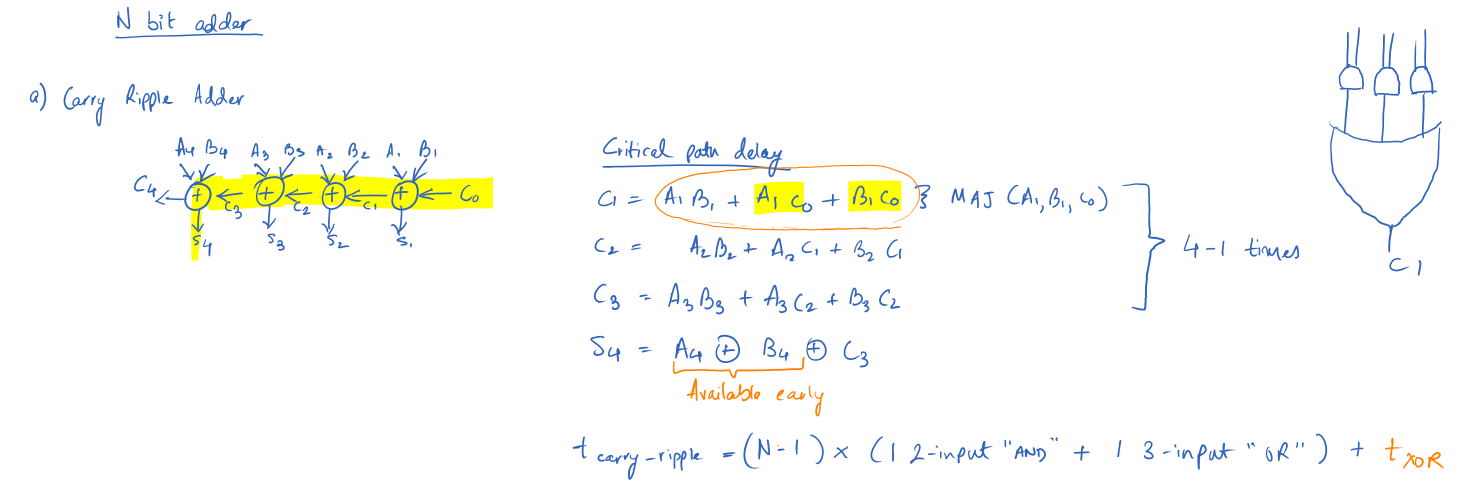 N bit adder
a) Carry Ripple Adder
A4 B4 A3 B3 A2 B2 A1 B1
C4 + C3 + C2 + C1 + C0
S4 S3 S2 S1
Critical path delay
C1 = A1 B1 + A1 C0 + B1 C0 } MAJ (A1, B1, C0)
C2 = A2 B2 + A2 C1 + B2 C1
4-1 times
C3 = A3 B3 + A3 C2 + B3 C2
S4 = A4 ⊕ B4 ⊕ C3
Available early
t carry-ripple = (N-1) × (1 2-input "AND" + 1 3-input "OR") + t XOR
C1